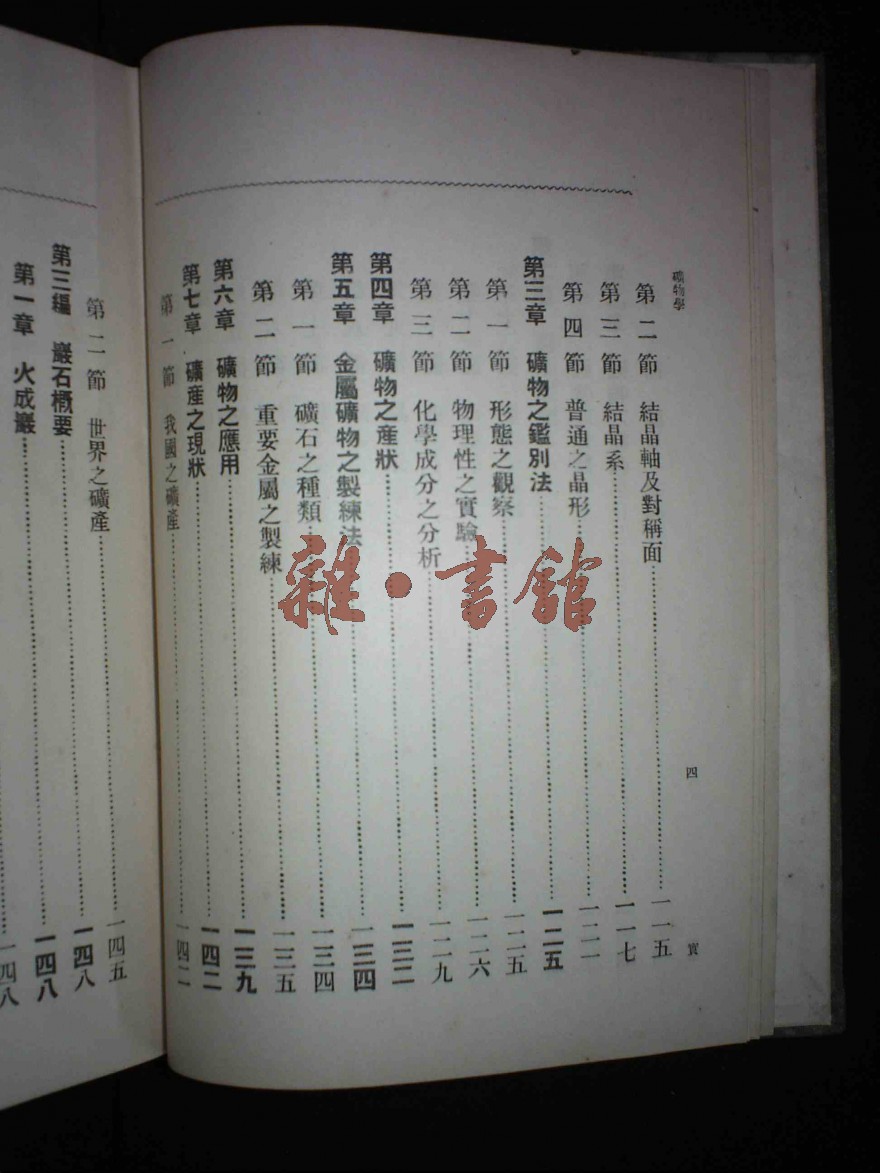 礦物學
四
實
第二節 結晶軸及對稱面 一一五
第三節 結晶系 一一七
第四節 普通之晶形 一二一
第三章 礦物之鑑別法 一二五
第一節 形態之觀察 一二五
第二節 物理性之實驗 一二六
第三節 化學成分之分析 一二九
第四章 礦物之產狀 一三二
第五章 金屬礦物之製練法 一三四
第一節 礦石之種類 一三四
第二節 重要金屬之製練 一三五
第六章 礦物之應用 一三九
第七章 礦產之現狀 一四二
第一節 我國之礦產 一四二
第二節 世界之礦產 一四五
第三編 巖石概要 一四八
第一章 火成巖 一四八
一四八
雜·書館